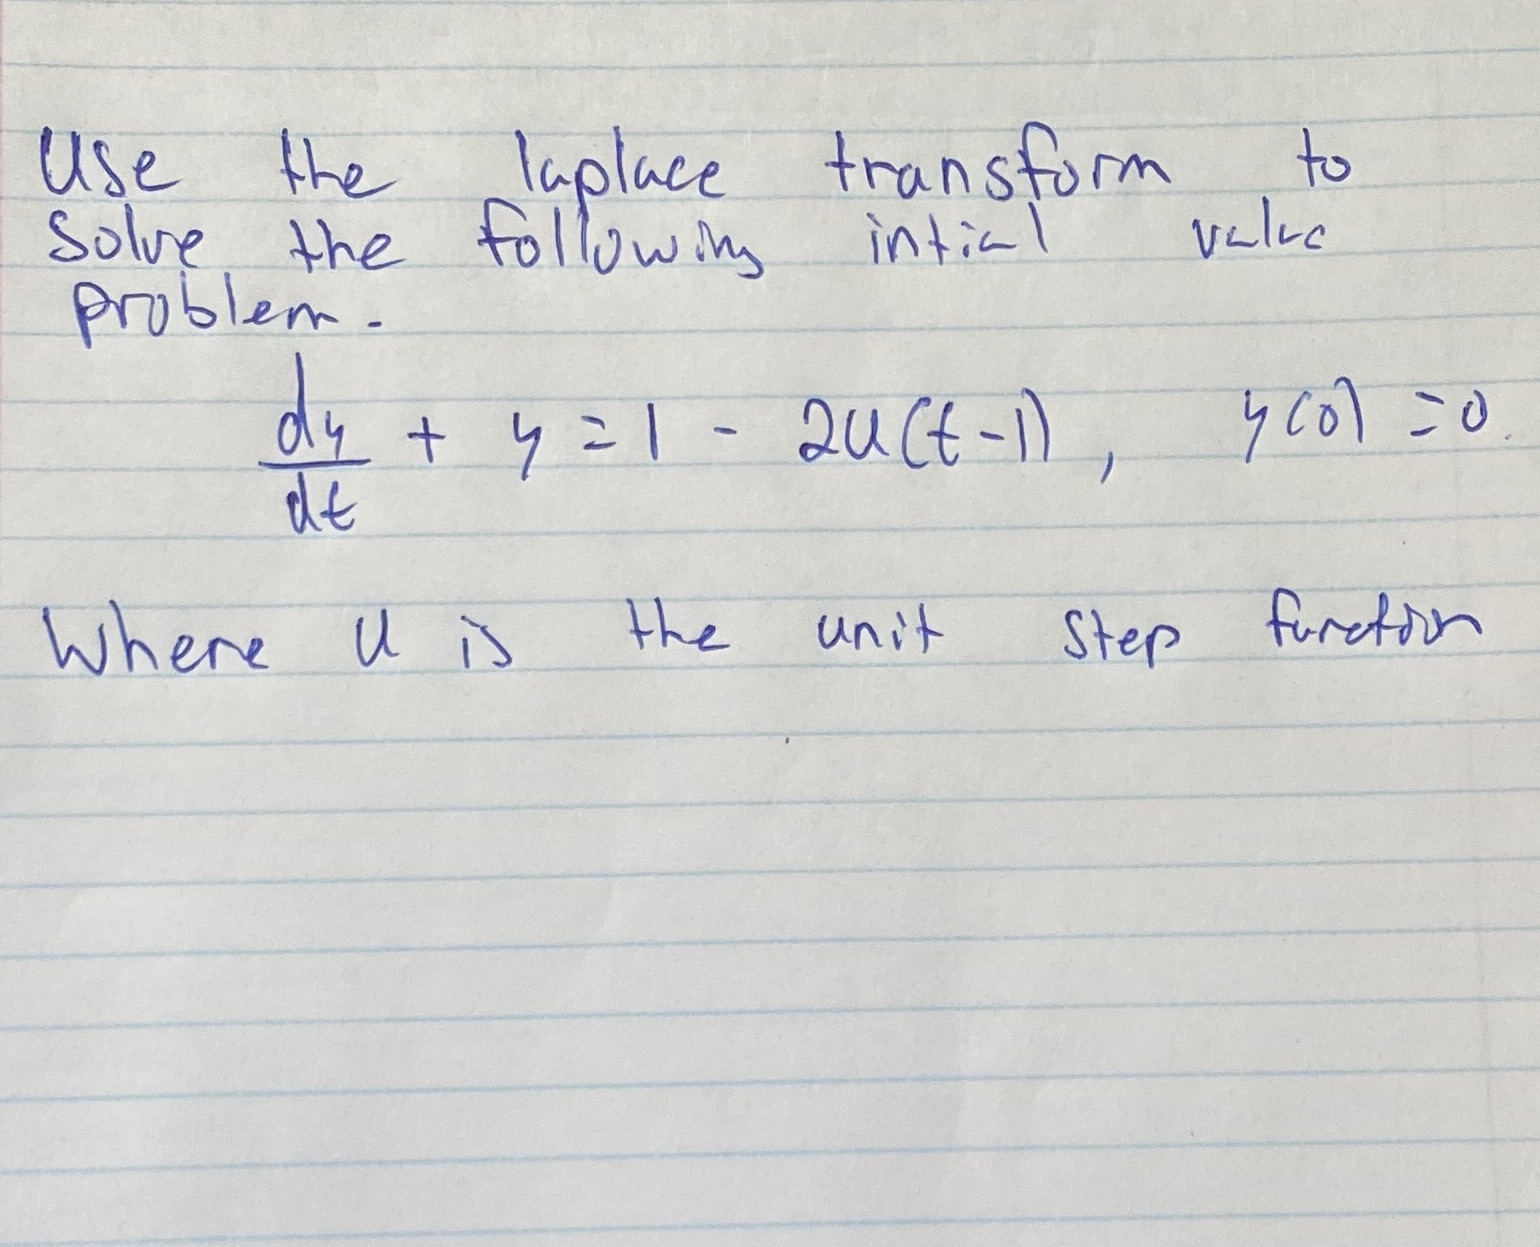 Use the laplace transform to
solve the following intial value
problem.
dy/dt + y = 1 - 2u(t-1), y(0) = 0.
Where u is the unit step function